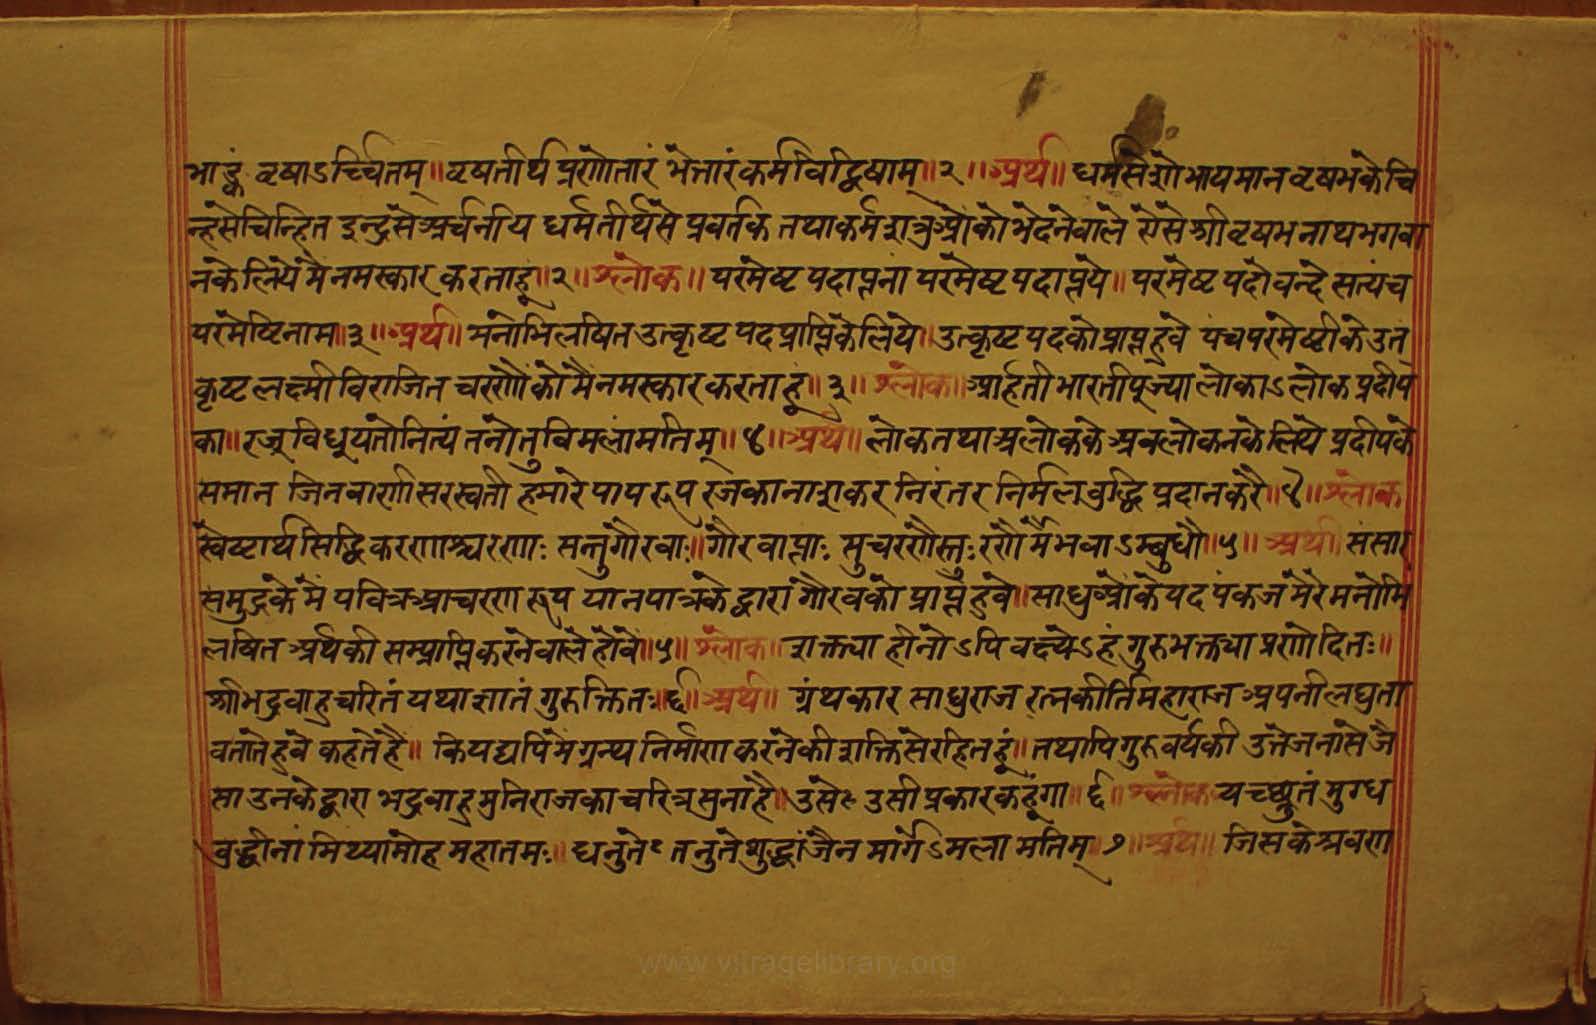 भाङ्कं वृषाऽर्च्चितम्॥ वृषतीर्थप्रणेतारं भेत्तारंकर्मविद्विषाम्॥२॥ अर्थ॥ धर्मसेशोभायमान वृषभकेचि
न्हसेचिन्हित इन्द्रसेअर्चनीय धर्मतीर्थसे प्रवर्तक तथाकर्मशत्रुओंकोभेदनेवाले ऐसेश्रीवृषभनाथभगवा
नकेलियेमैनमस्कारकरताहूं॥२॥ श्लोक॥ परमेष्ट पदाप्तानां परमेष्ट पदाप्तये॥ परमेष्ट पदोवन्दे सत्यंच
परमेष्टिनाम॥३॥ अर्थ॥ मनोभिलषित उत्कृष्ट पदप्राप्तिकेलिये॥ उत्कृष्ट पदकोप्राप्तहुवे पंचपरमेष्टीके उत
कृष्ट लक्ष्मीविराजित चरणोंकोमैनमस्कारकरताहूं॥३॥ श्लोक॥ आर्हतीभारतीपूज्या लोकाऽलोक प्रदीप
का॥ रजूविधूयतोनित्यं तनोतुविमलांमतिम्॥४॥ अर्थ॥ लोकतथाअलोकके अवलोकनकेलिये प्रदीपके
समान जिनवाणीसरस्वती हमारे पापरूप रजकानाशकर निरंतर निर्मलबुद्धि प्रदानकरै॥४॥ श्लोक
स्वेष्टार्थसिद्धिकरणाश्चरणाः सन्तुगौरवाः॥ गौरवाप्ताः सुचरणैस्तुःरणैर्मेभवाऽम्बुधौ॥५॥ अर्थ॥ संसार
समुद्रकेमें पवित्रआचरणरूप यानपात्रकेद्वारा गौरवको प्राप्तहुवे॥ साधुओंकेपद पंकजमेरेमनोभि
लषित अर्थकी सम्प्राप्तिकरनेवाले होवे॥५॥ श्लोक॥ शक्त्या हीनोऽपि वक्ष्येऽहं गुरुभक्त्या प्रणोदितः॥
श्रीभद्रबाहुचरितं यथाज्ञातं गुरूक्तितः॥६॥ अर्थ॥ ग्रंथकार साधुराज रत्नकीर्तिमहाराज अपनीलघुता
बतातेहुवे कहतेहै॥ कियद्यपिमै ग्रन्थ निर्माण करनेकीशक्तिसेरहितहूं॥ तथापिगुरुवर्यकी उत्तेजनासे जै
सा उनकेद्वारा भद्रबाहुमुनिराजकाचरित्रसुनाहै॥ उसे उसीप्रकारकहूंगा॥६॥ श्लोक यच्छ्रुतं मुग्ध
बुद्धीनां मिथ्यामोहमहातमः॥ धनुतेऽ तनुतेशुद्धांजैनमार्गेऽमलां मतिम्॥७॥ अर्थ॥ जिसकेश्रवण
www.vitragelibrary.org